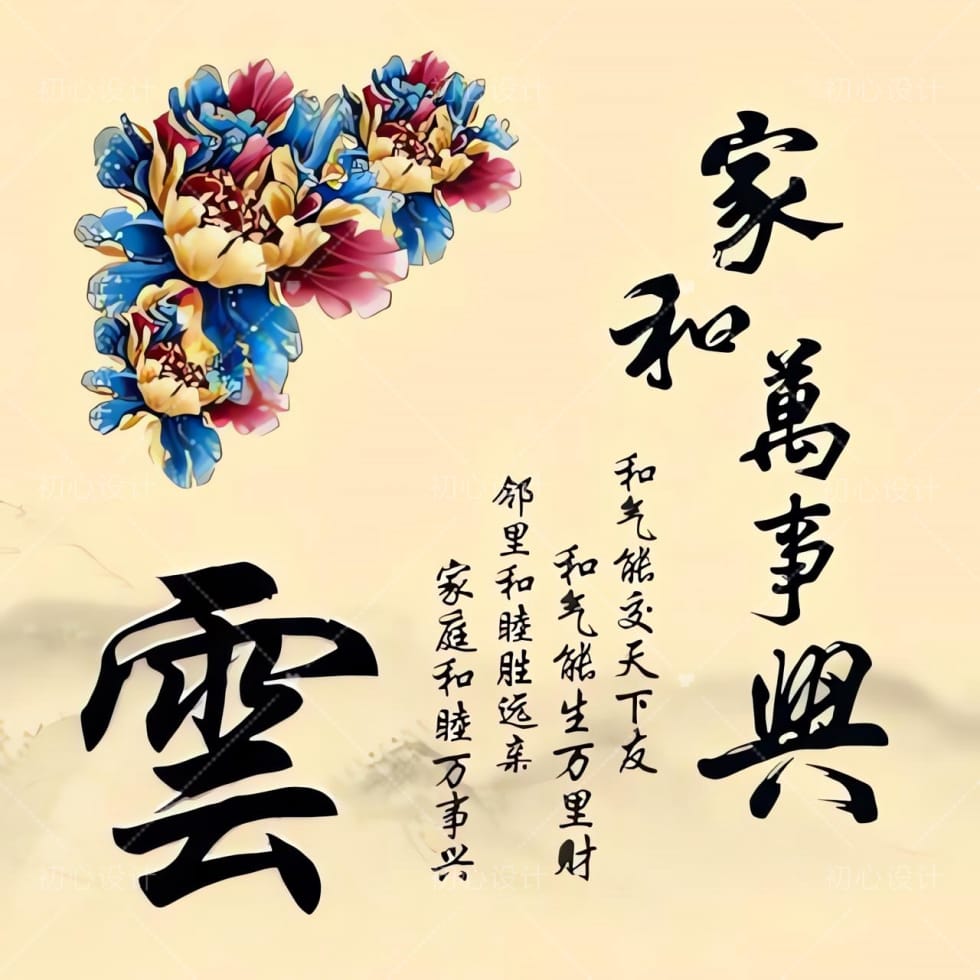 家和萬事興
和气能交天下友
和气能生万里财
邻里和睦胜远亲
家庭和睦万事兴
雲
初心设计
初心设计
初心设计
初心设计
初心设计
初心设计
初心设计
初心设计
初心设计